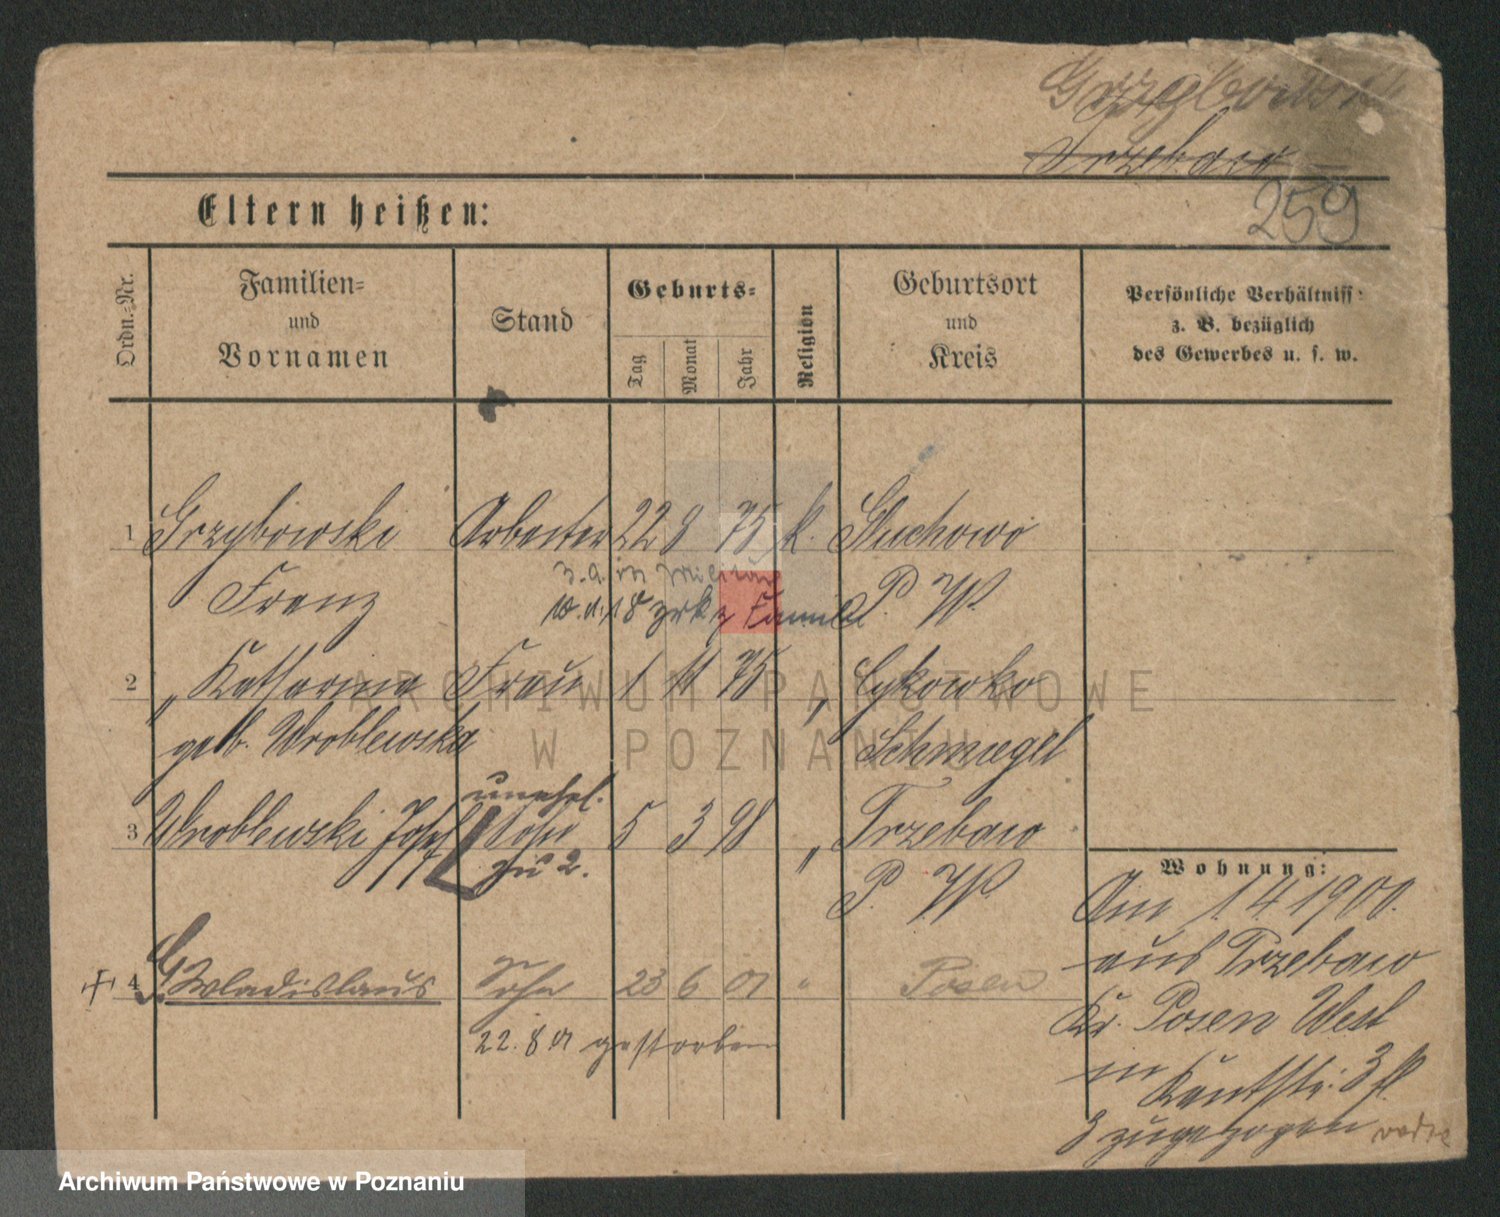 Grzybowski
Trzebaw
259
Eltern heißen:
Ordn.-Nr.
Familien-
und
Vornamen
Stand
Geburts-
Tag
Monat
Jahr
Religion
Geburtsort
und
Kreis
Persönliche Verhältniss
z. B. bezüglich
des Gewerbes u. s. w.
1 Grzybowski Arbeiter 22 9 75 k. Gluchowo
z. Familie
Franz P. W.
2 " Katharina Frau 1 11 75 " Lykowko
geb. Wroblewska Schmiegel
unehl.
3 Wroblewski Josef Sohn 5 3 98 " Trzebaw
zu 2. P. W.
4 G. Wladislaus Sohn 23 6 01 " Posen
22. 8 01 gestorben
Wohnung:
Am 1.4.1900.
aus Trzebaw
Kr. Posen West
in
zugezogen
ARCHIWUM PAŃSTWOWE
W POZNANIU
Archiwum Państwowe w Poznaniu